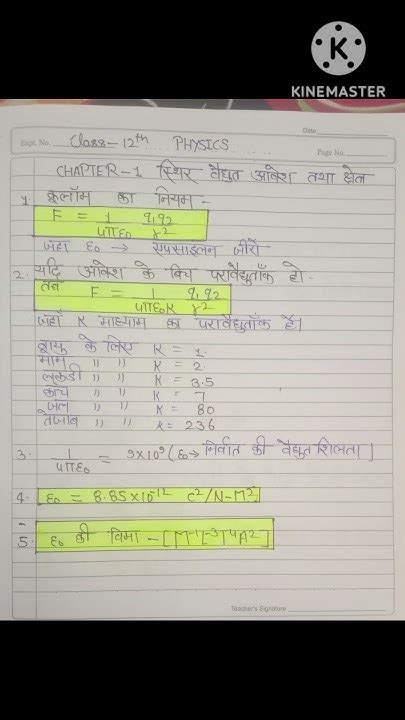 KINEMASTER
Date
Expt. No. Class-12th PHYSICS Page No.
CHAPTER-1 स्थिर वैद्युत आवेश तथा क्षेत्र
1. कूलॉम का नियम -
F = 1/4πε₀ q₁q₂/r²
जहाँ ε₀ → एपसाइलन जीरो
2. यदि आवेश के बिच परावैद्युताँक हो -
तब F = 1/4πε₀K q₁q₂/r²
जहाँ K माध्याम का परावैद्युताँक है।
वायु के लिए K = 1.
मोम " " K = 2
लकड़ी " " K = 3.5
काँच " " K = 7
जल " " K = 80
तेजाब " " K = 236
3. 1/4πε₀ = 9×10⁹ (ε₀→ निर्वात की वैद्युतशिलता ]
4. ε₀ = 8.85×10⁻¹² C²/N-M²
5. ε₀ की विमा - [M⁻¹L⁻³T⁴A²]
Teacher's Signature